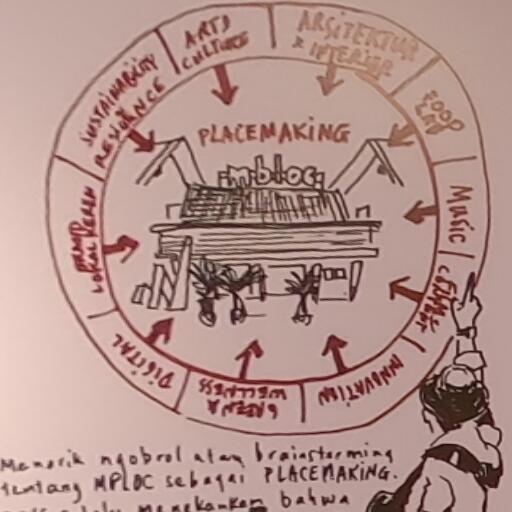 ARTS
CULTURE
ARSITEKTUR
& INTERIOR
FOOD
LAB
MUSIC
INNOVATION
GREEN &
WELLNESS
DIGITAL
LOKAL KEREN
SUSTAINABILITY
RESILIENCE
PLACEMAKING
mbloc
Menarik ngobrol atau brainstorming
tentang MPLOC sebagai PLACEMAKING.
menekankan bahwa